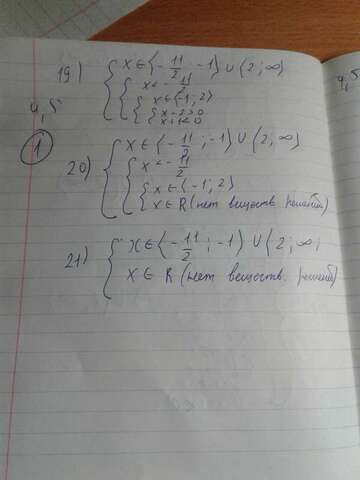 19) { x ∈ {-11/2; -1} ∪ {2; ∞}
{ x < -11/2
{ x ∈ {-1; 2}
{ x - 2 > 0
{ x + 1 < 0
4,5
4,5
1
20) { x ∈ {-11/2; -1} ∪ {2; ∞}
{ x = -11/2
{ x ∈ {-1; 2}
{ x ∈ R (нет веществ. решений)
21) { x ∈ {-11/2; -1} ∪ {2; ∞;
x ∈ R (нет веществ. решений)